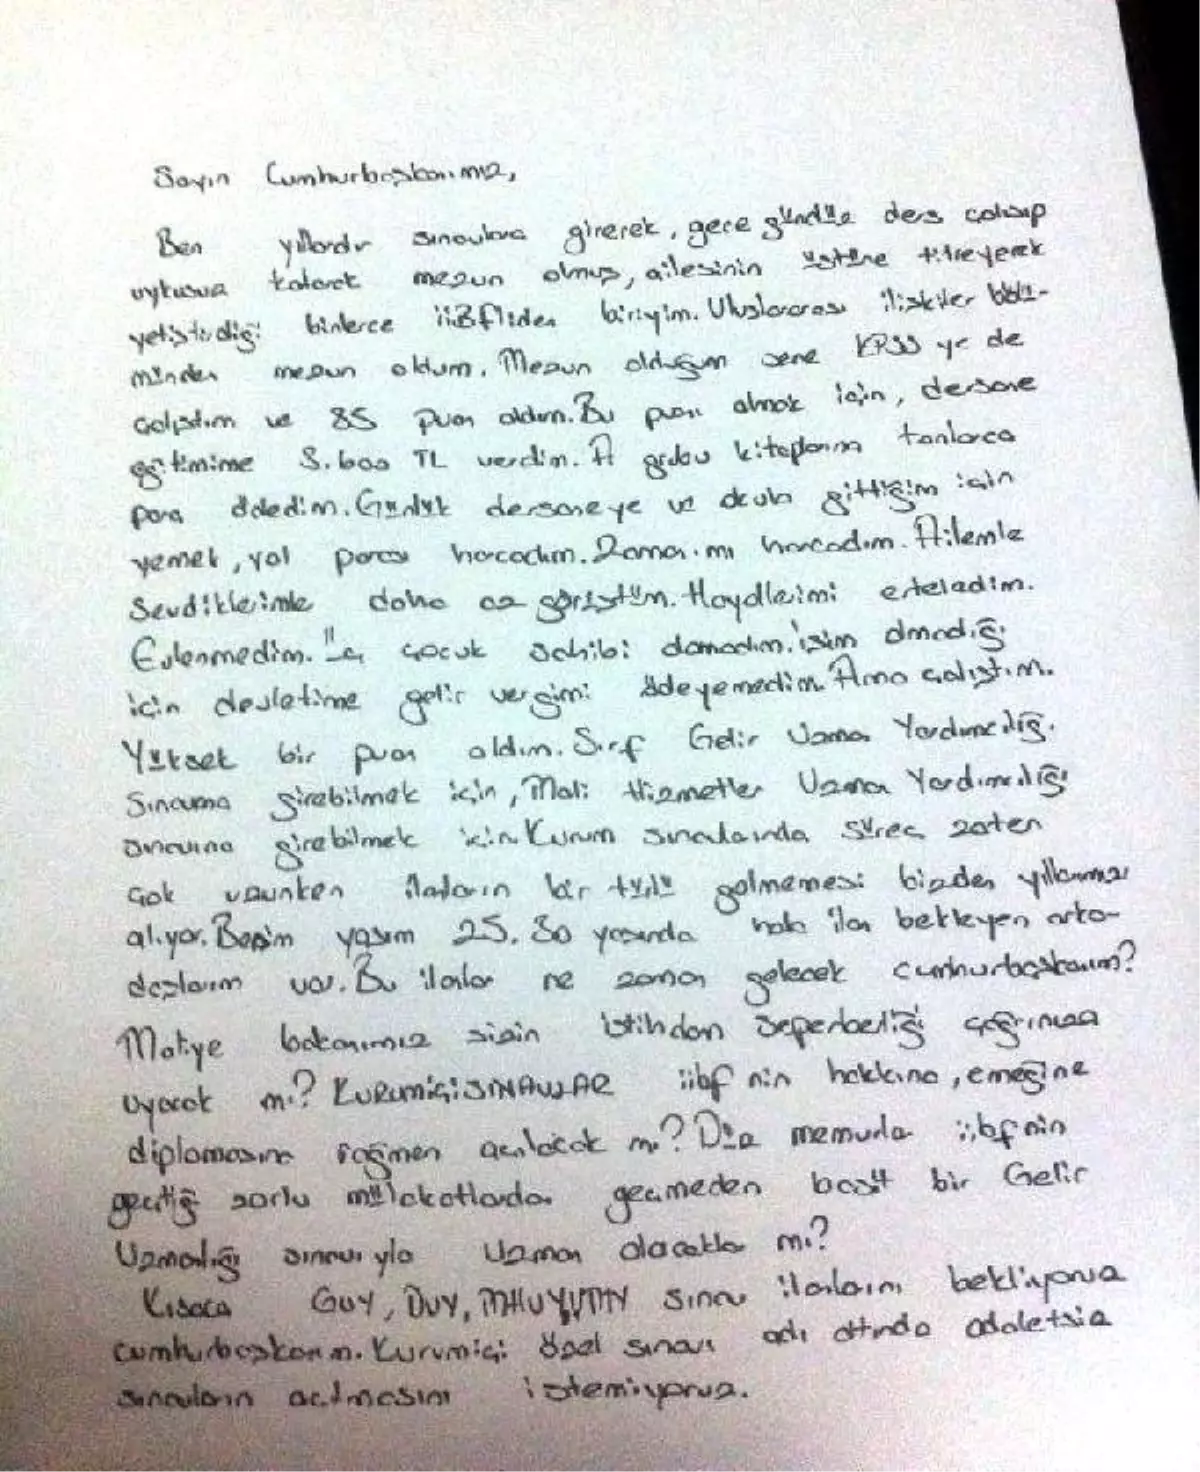 Sayın Cumhurbaşkanımız,
Ben yıllardır sınavlara girerek, gece gündüz ders çalışıp
uykusuz kalarak mezun olmuş, ailesinin üstüne titreyerek
yetiştirdiği binlerce iiBFliden biriyim. Uluslararası ilişkiler bölü-
münden mezun oldum. Mezun olduğum sene KPSS ye de
çalıştım ve 85 puan aldım. Bu puanı almak için, dersane
eğitimime TL verdim. A grubu kitaplarına tonlarca
para ödedim. Günlük dersaneye ve okula gittiğim için
yemek, yol parası harcadım. Zamanımı harcadım. Ailemle
Sevdiklerimle daha az görüştüm. Hayallerimi erteladim.
Evlenmedim. Üç çocuk sahibi olamadım. işim olmadığı
için devletime gelir vergimi ödeyemedim. Ama çalıştım.
Yüksek bir puan aldım. Sırf Gelir Uzman Yardımcılığı
Sınavına girebilmek için, Mali Hizmetler Uzman Yardımcılığı
sınavına girebilmek için. Kurum sınavlarında süreç zaten
çok uzunken ilanların bir türlü gelmemesi bizden yıllarımızı
alıyor. Benim yaşım 25. 30 yaşında hala ilan bekleyen arka-
daşlarım var. Bu ilanlar ne zaman gelecek cumhurbaşkanım?
Maliye bakanımız sizin istihdam seferberliği çağrınıza
uyacak mı? KURUMiÇi SINAVLAR iibf nin hakkına, emeğine
diplomasına rağmen açılacak mı? Düz memurlar iibfnin
geçtiği zorlu mülakatlardan geçmeden basit bir Gelir
Uzmanlığı sınavıyla Uzman olacaklar mı?
Kısaca GUY, DUY, MHUY sınav ilanlarını bekliyoruz
cumhurbaşkanım. Kurumiçi özel sınavı adı altında adaletsiz
sınavların açılmasını istemiyoruz.